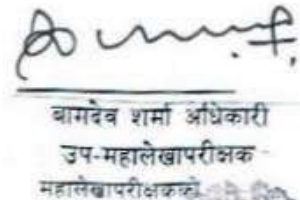 बामदेव शर्मा अधिकारी
उप-महालेखापरीक्षक
महालेखापरीक्षकको